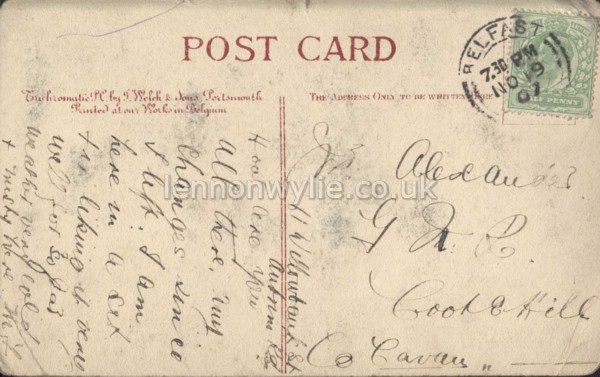 POST CARD
Trichromatic P.C. by J. Welch & Sons, Portsmouth
Printed at our Works in Belgium
THE ADDRESS ONLY TO BE WRITTEN HERE
BELFAST
7.30 PM
NO 19
07
HALF PENNY
lennonwylie.co.uk
Alexander
Coote Hill
Co Cavan
11 Willowbank St
Antrim Rd
How are you
all there any
changes since
I left. I am
here in a
& am liking it very
well for so far
weather very cold
& misty here